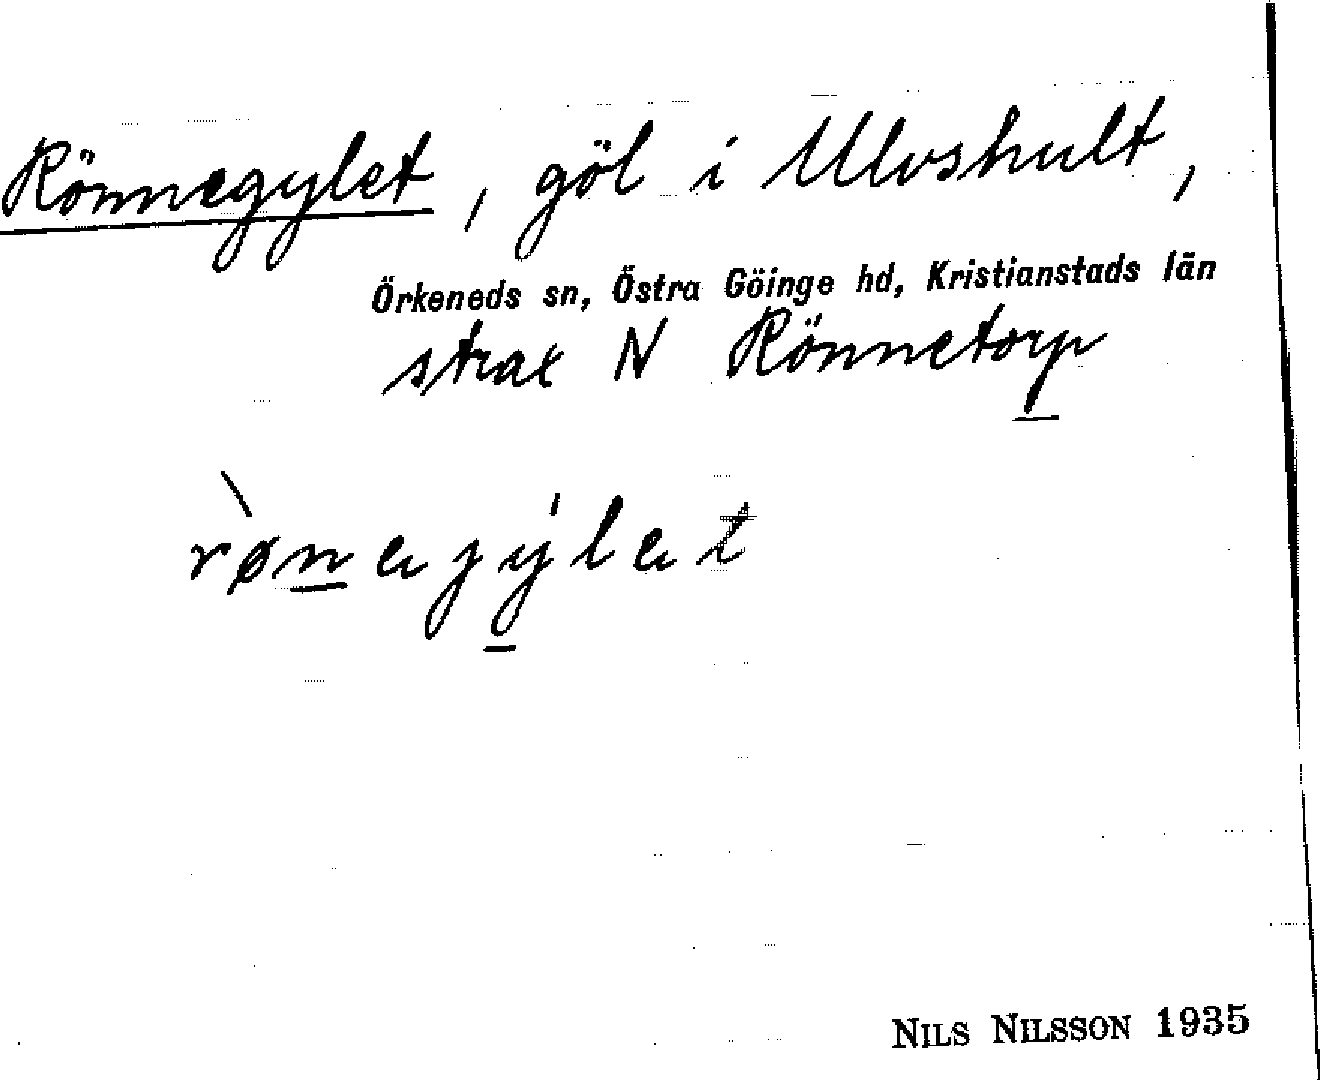 Rönnegylet, göl i Ulvshult,
Örkeneds sn, Östra Göinge hd, Kristianstads län
strax N Rönnetorp
rø̀nejýlet
NILS NILSSON 1935